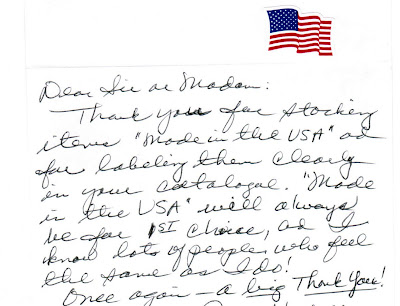 Dear Sir or Madam:
Thank you for stocking
items "Made in the USA" ad
for labeling them clearly
in your catalogue. "Made
in the USA" will always
be for 1ST choice, as I
know lots of people who feel
the same as I do!
Once again – a big Thank You!